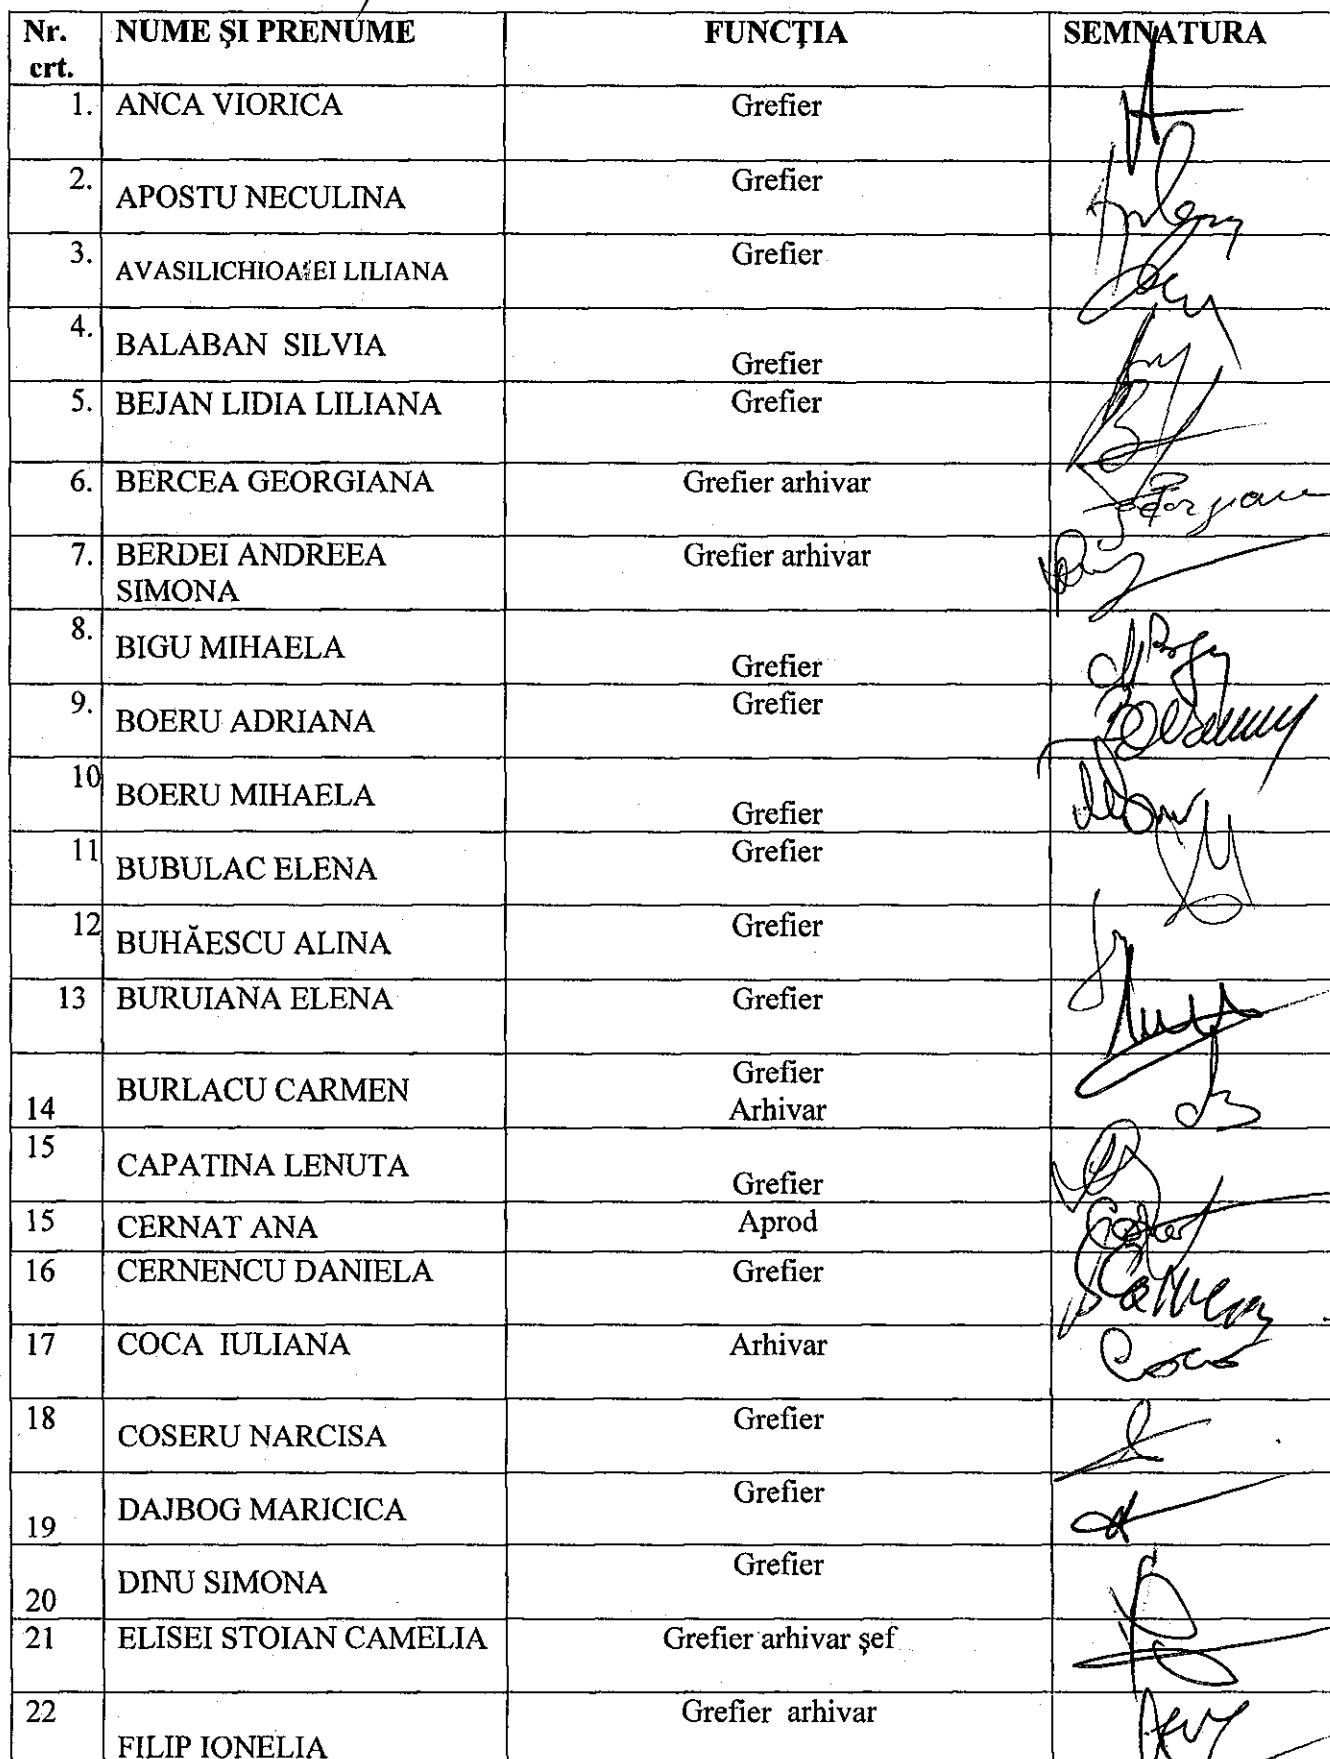 Nr. crt. NUME ŞI PRENUME FUNCŢIA SEMNATURA
1. ANCA VIORICA Grefier
2. APOSTU NECULINA Grefier
3. LILIANA Grefier
4. BALABAN SILVIA Grefier
5. BEJAN LIDIA LILIANA Grefier
6. BERCEA GEORGIANA Grefier arhivar
7. BERDEI ANDREEA Grefier arhivar
SIMONA
8. BIGU MIHAELA Grefier
9. BOERU ADRIANA Grefier
10 BOERU MIHAELA Grefier
11 BUBULAC ELENA Grefier
12 BUHĂESCU ALINA Grefier
13 BURUIANA ELENA Grefier
14 BURLACU CARMEN Grefier
Arhivar
15 CAPATINA LENUTA Grefier
15 CERNAT ANA Aprod
16 CERNENCU DANIELA Grefier
17 COCA IULIANA Arhivar
18 COSERU NARCISA Grefier
19 DAJBOG MARICICA Grefier
20 DINU SIMONA Grefier
21 ELISEI STOIAN CAMELIA Grefier arhivar şef
22 FILIP IONELIA Grefier arhivar